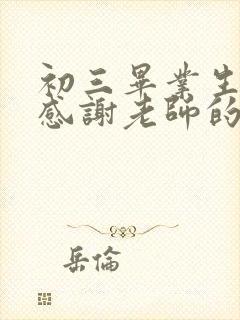 初三畢業生
感謝老師的
岳倫